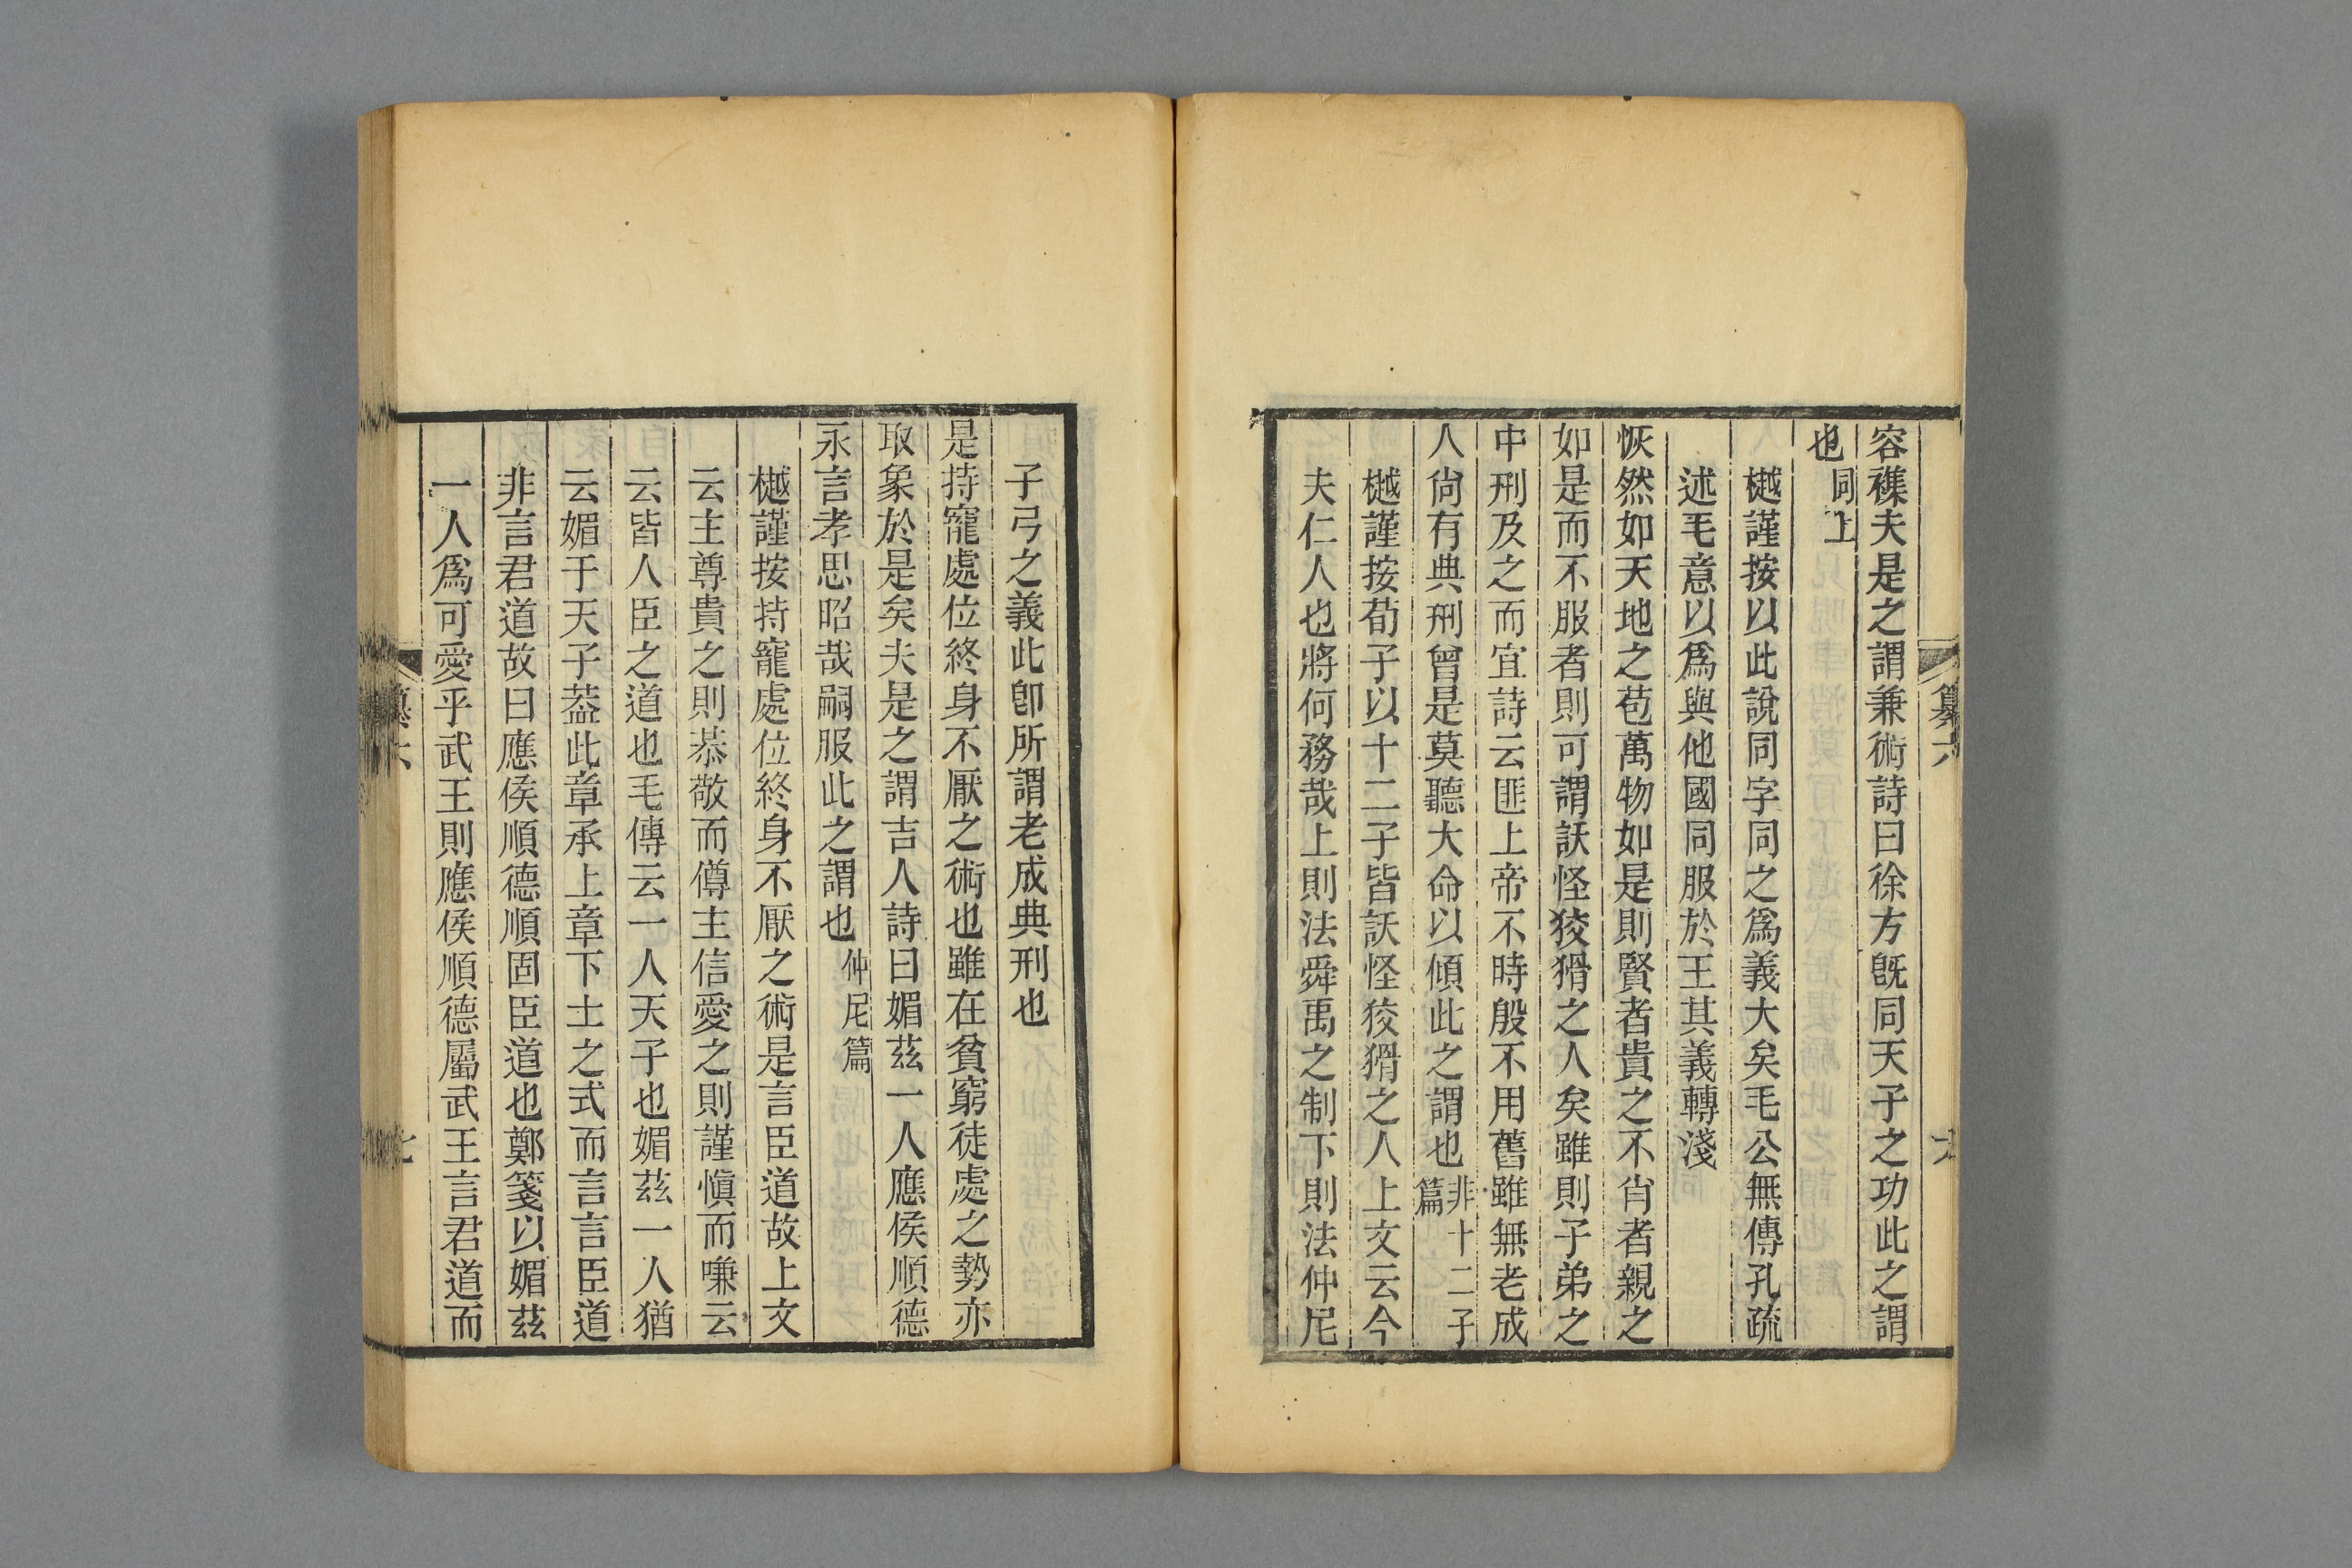 容襍夫是之謂兼術詩曰徐方旣同天子之功此之謂
也同上
樾謹按以此說同字同之爲義大矣毛公無傳孔疏
述毛意以爲與他國同服於王其義轉淺
恢然如天地之苞萬物如是則賢者貴之不肖者親之
如是而不服者則可謂訞怪狡猾之人矣雖則子弟之
中刑及之而宜詩云匪上帝不時殷不用舊雖無老成
人尙有典刑曾是莫聽大命以傾此之謂也非十二子篇
樾謹按荀子以十二子皆訞怪狡猾之人上文云今
夫仁人也將何務哉上則法舜禹之制下則法仲尼
纂六
六
子弓之義此卽所謂老成典刑也
是持寵處位終身不厭之術也雖在貧窮徒處之勢亦
取象於是矣夫是之謂吉人詩曰媚茲一人應侯順德
永言孝思昭哉嗣服此之謂也仲尼篇
樾謹按持寵處位終身不厭之術是言臣道故上文
云主尊貴之則恭敬而僔主信愛之則謹愼而嗛云
云皆人臣之道也毛傳云一人天子也媚茲一人猶
云媚于天子葢此章承上章下土之式而言言臣道
非言君道故曰應侯順德順固臣道也鄭箋以媚茲
一人爲可愛乎武王則應侯順德屬武王言君道而
纂六
七